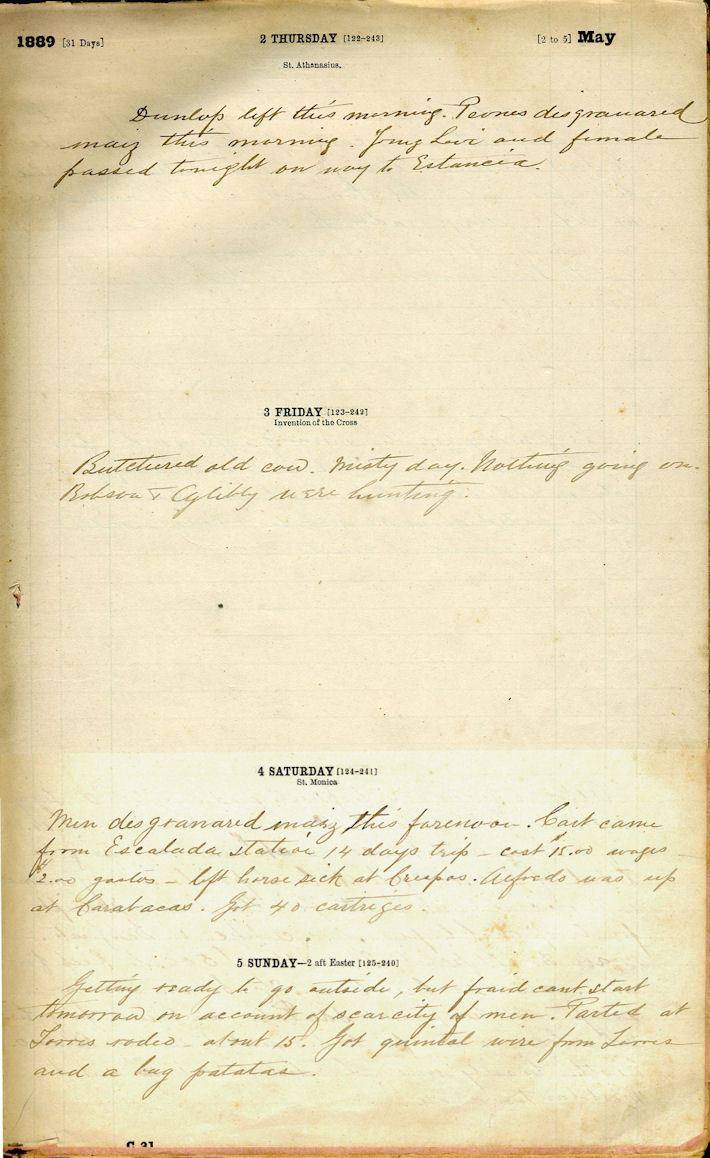 1889 [31 Days] 2 THURSDAY [122-243] [2 to 5] May
St. Athanasius.
Dunlop left this morning. Peones desgranared
maiz this morning. Young Levi and female
passed tonight on way to Estancia.
3 FRIDAY [123-242]
Invention of the Cross
Butchered old cow. Misty day. Nothing going on.
Robson & were hunting.
4 SATURDAY [124-241]
St. Monica
Men desgranared maiz this forenoon. Cart came
from Escalada station 14 days trip - cost $15.00 wages -
$2.00 gastos - left horse sick at Crespos. Alfredo was up
at Carabacas. Got 40 cartriges.
5 SUNDAY—2 aft Easter [125-240]
Getting ready to go outside, but fraid cant start
tomorrow on account of scarcity of men. Parted at
Torres rodeo - about 15. Got quintal wire from Torres
and a bag patatas.
C 31